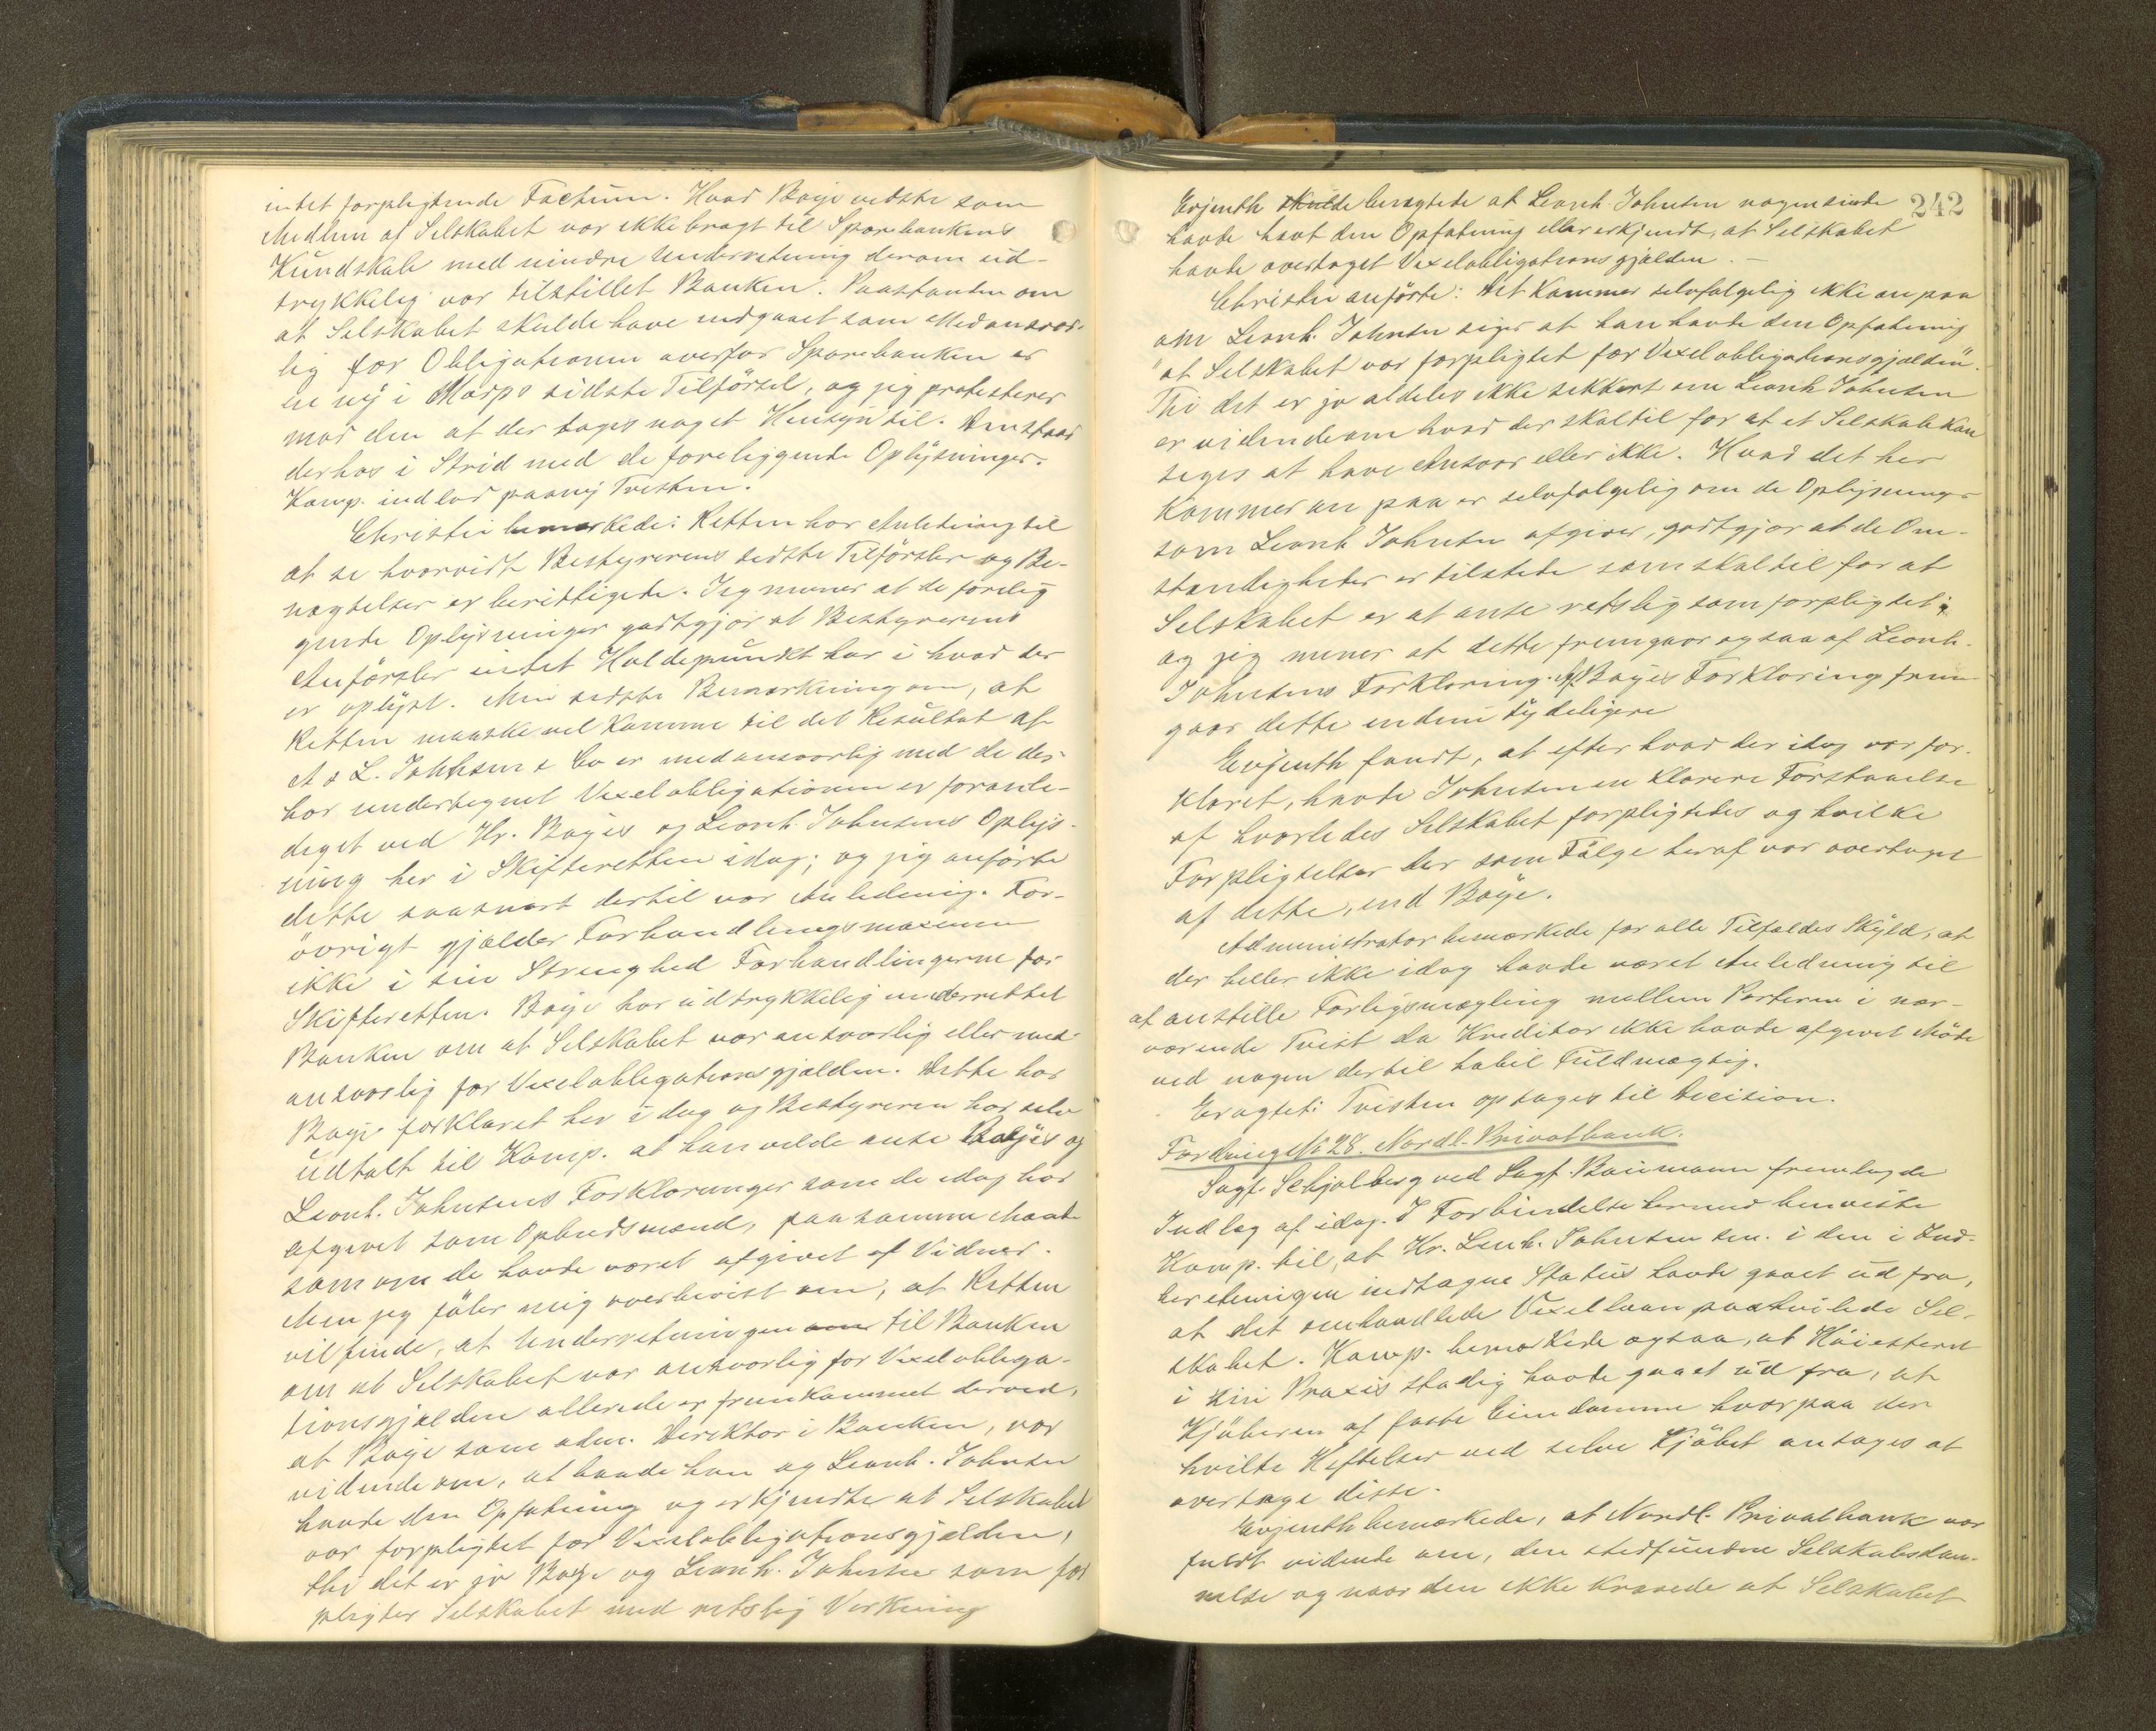 intet forpligtende Factum. Hvad Bøye vidste som
Medlem af Selskabet var ikke bragt til Sparebankens
Kundskab med mindre Underretning derom ud-
trykkelig var tilstillet Banken. Paastanden om
at Selskabet skulde have indgaaet som Medansvar-
lig for Obligationen overfor Sparebanken er
en ny i Morps sidste Tilførsel, og jeg protesterer
mod den at der tages noget Hensyn til. Den staar
derhos i Strid med de foreliggende Oplysninger.
Komp. indlod paany Tvisten.
Christie bemærkede: Retten har Anledning til
at se hvorvidt Bestyrerens sidste Tilførsler og Be-
nægtelser er berettigede. Jeg mener at de forelig
gende Oplysninger godtgjør at Bestyrerens
Anførsler intet Holdepunkt har i hvad der
er oplyst. Min sidste Bemærkning om, at
Retten maaske vil komme til det Resultat at
A/s L. Johnsen & Co er medansvarlig med de der
har undertegnet Vexelobligationen er foranle-
diget ved Hr. Bøyes og Leonh. Johnsens Oplys-
ning her i Skifteretten idag; og jeg anførte
dette saasnart dertil var Anledning. For-
øvrigt gjælder Forhandlingsmaximen
ikke i sin Strenghed Forhandlingerne for
Skifteretten. Bøye har udtrykkelig underrettet
Banken om at Selskabet var ansvarlig eller med-
ansvarlig for Vexelobligationsgjælden. Dette har
Bøye forklaret her i dag og Bestyreren har selv
udtalt til Komp. at han vilde anse Bøyes og
Leonh. Johnsens Forklaringer som de idag har
afgivet som Opbudsmænd, paa samme Maade
som om de havde været afgivet af Vidner.
Men jeg føler mig overbevist om, at Retten
vil finde, at Underretningen om til Banken
om at Selskabet var ansvarlig for Vexelobliga-
tionsgjælden allerede er fremkommet derved,
at Bøye som adm. Direktør i Banken, var
vidende om, at baade han og Leonh. Johnsen
havde den Opfatning og erkjendte at Selskabet
var forpligtet for Vexelobligationsgjælden,
thi det er jo Bøye og Leonh. Johnsen som for
pligter Selskabet med retslig Virkning
242
Evjenth skulde benægtede at Leonh Johnsen nogensinde
havde havt den Opfatning eller erkjendt, at Selskabet
havde overtaget Vexelobligationsgjælden. –
Christie anførte: Det kommer selvfølgelig ikke an paa
om Leonh. Johnsen siger at han havde den Opfatning
"at Selskabet var forpligtet for Vexelobligationsgjælden".
Thi det er jo aldeles ikke sikkert om Leonh Johnsen
er vidende om hvad der skal til for at et Selskab kan
siges at have Ansvar eller ikke. Hvad det her
kommer an paa er selvfølgelig om de Oplysninger
som Leonh Johnsen afgiver, godtgjør at de Om-
stændigheder er tilstede som skal til for at
Selskabet er at anse retslig som forpligtet;
og jeg mener at dette fremgaar ogsaa af Leonh.
Johnsens Forklaring. Af Bøyes Forklaring frem-
gaar dette endnu tydeligere
Evjenth fandt, at efter hvad der idag var for-
klaret, havde Johnsen en klarere Forstaaelse
af hvorledes Selskabet forpligtedes og hvilke
Forpligtelser der som Følge heraf var overtaget
af dette, end Bøye.
Administrator bemærkede for alle Tilfældes Skyld, at
der heller ikke idag havde været Anledning til
at anstille Forligsmægling mellem Parterne i nær-
værende Tvist da Kreditor ikke havde afgivet Møde
ved nogen dertil habel Fuldmægtig.
Eragtet: Tvisten optages til Decision.
Fordring № 28. Nordl. Privatbank.
Sagf. Schjelberg ved Sagf. Baumann fremlagde
Indlæg af idag. I Forbindelse hermed henviste
Komp. til, at Hr. Leonh. Johnsen sen. i den i Ind-
beretningen indtagne Status havde gaaet ud fra,
at det omhandlede Vexellaan paahvilede Sel-
skabet. Komp. bemærkede ogsaa, at Høiesteret
i sin Praxis stadig havde gaaet ud fra, at
Kjøberen af faste Eiendomme hvorpaa der
hvilte Heftelser ved selve Kjøbet antages at
overtage disse.
Evjenth bemærkede, at Nordl. Privatbank var
fuldt vidende om, den stedfundne Selskabsdan-
nelse og naar den ikke krævede at Selskabet